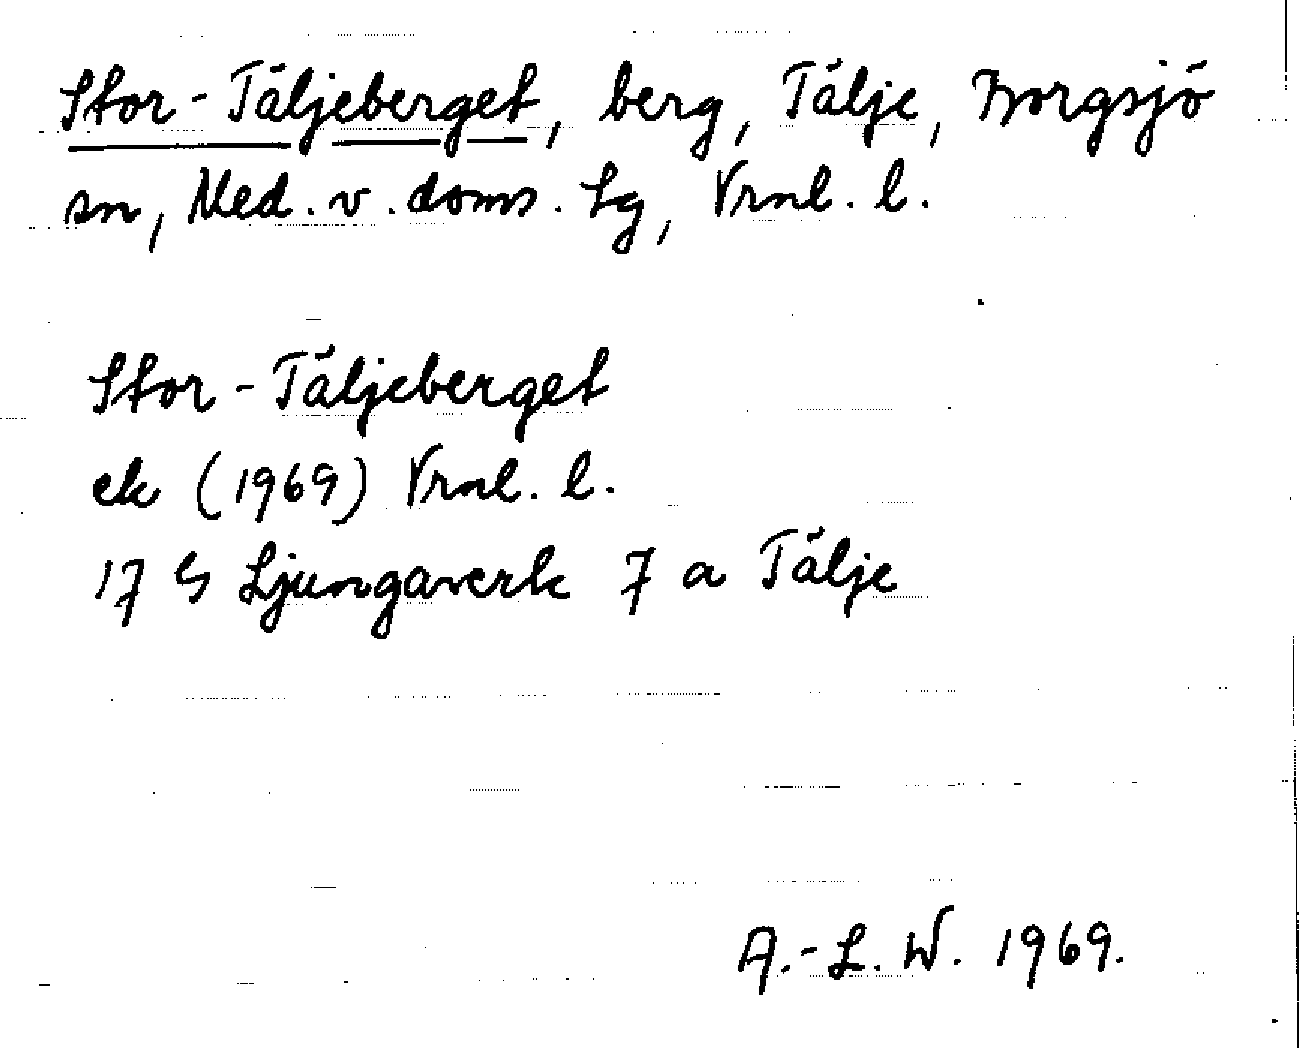 Stor-Täljeberget, berg, Tälje, Borgsjö
sn, Med. v. doms. lg, Vrnl. l.
Stor-Täljeberget
ek (1969) Vrnl. l.
17 G Ljungaverk 7 a Tälje
A.-L. W. 1969.